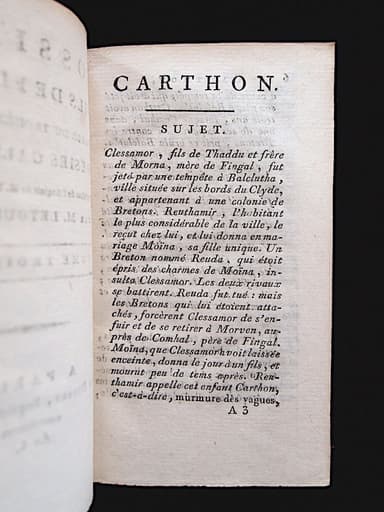 CARTHON.
SUJET.
Clessamor, fils de Thaddu et frère
de Morna, mère de Fingal, fut
jeté par une tempête à Balclutha,
ville située sur les bords du Clyde,
et appartenant à une colonie de
Bretons. Reuthamir, l'habitant
le plus considérable de la ville, le
reçut chez lui, et lui donna en ma-
riage Moïna, sa fille unique. Un
Breton nommé Reuda, qui étoit
épris des charmes de Moïna, in-
sulta Clessamor. Les deux rivaux
se battirent. Reuda fut tué: mais
les Bretons qui lui étoient atta-
chés, forcèrent Clessamor de s'en-
fuir et de se retirer à Morven, au-
près de Comhal, père de Fingal.
Moïna, que Clessamor avoit laissée
enceinte, donna le jour à un fils, et
mourut peu de tems après. Reu-
thamir appelle cet enfant Carthon,
c'est-à-dire, murmure dès vagues,
A 3